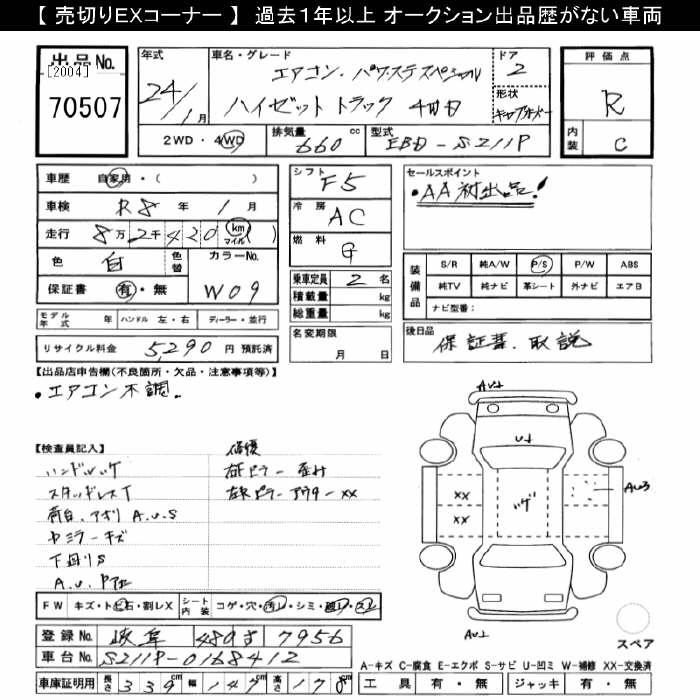 【 売切りEXコーナー 】 過去1年以上 オークション出品歴がない車両
出品No.
[2004]
70507
年式
24/1月
車名・グレード
エアコン・パワステスペシャル
ハイゼットトラック 4WD
ドア
2
形状
キャブオーバー
評価点
R
内装
C
2WD・4WD
排気量
660 cc
型式
EBD-S211P
車歴 自家用・( )
車検 R8年 1月
走行 8万2千420 km マイル ( )
色 白 色替
カラーNo.
W09
保証書 有・無
モデル年式 年 ハンドル 左・右 ディーラー・並行
リサイクル料金 5,290円 預託済
シフト
F5
冷房
AC
燃料
G
乗車定員 2名
積載量 kg
総重量 kg
名変期限
月 日
セールスポイント
・AA初出品!
装備品
S/R 純A/W P/S P/W ABS
純TV 純ナビ 革シート 外ナビ エアB
ナビ型番:
後日品
保証書、取説
【出品店申告欄(不良箇所・欠品・注意事項等)】
・エアコン不調.
【検査員記入】
ハンドルハゲ
スタッドレスT
荷台、アオリ A.U.S
ミラーキズ
下廻りS
A.U.P
修復
右Fピラー
ピラーアウターXX
AU1
U1
XX
XX
ハゲ
AU3
AU1
スペア
FW キズ・ト石・割レX シート内装 コゲ・穴・汚レ・シミ・・スレ
登録No. 岐阜 480す7956
車台No. S211P-0168412
車庫証明用 長さ 339cm 幅 147cm 高さ 178cm
A-キズ C-腐食 E-エクボ S-サビ U-凹ミ W-補修 XX-交換済
工具 有・無 ジャッキ 有・無